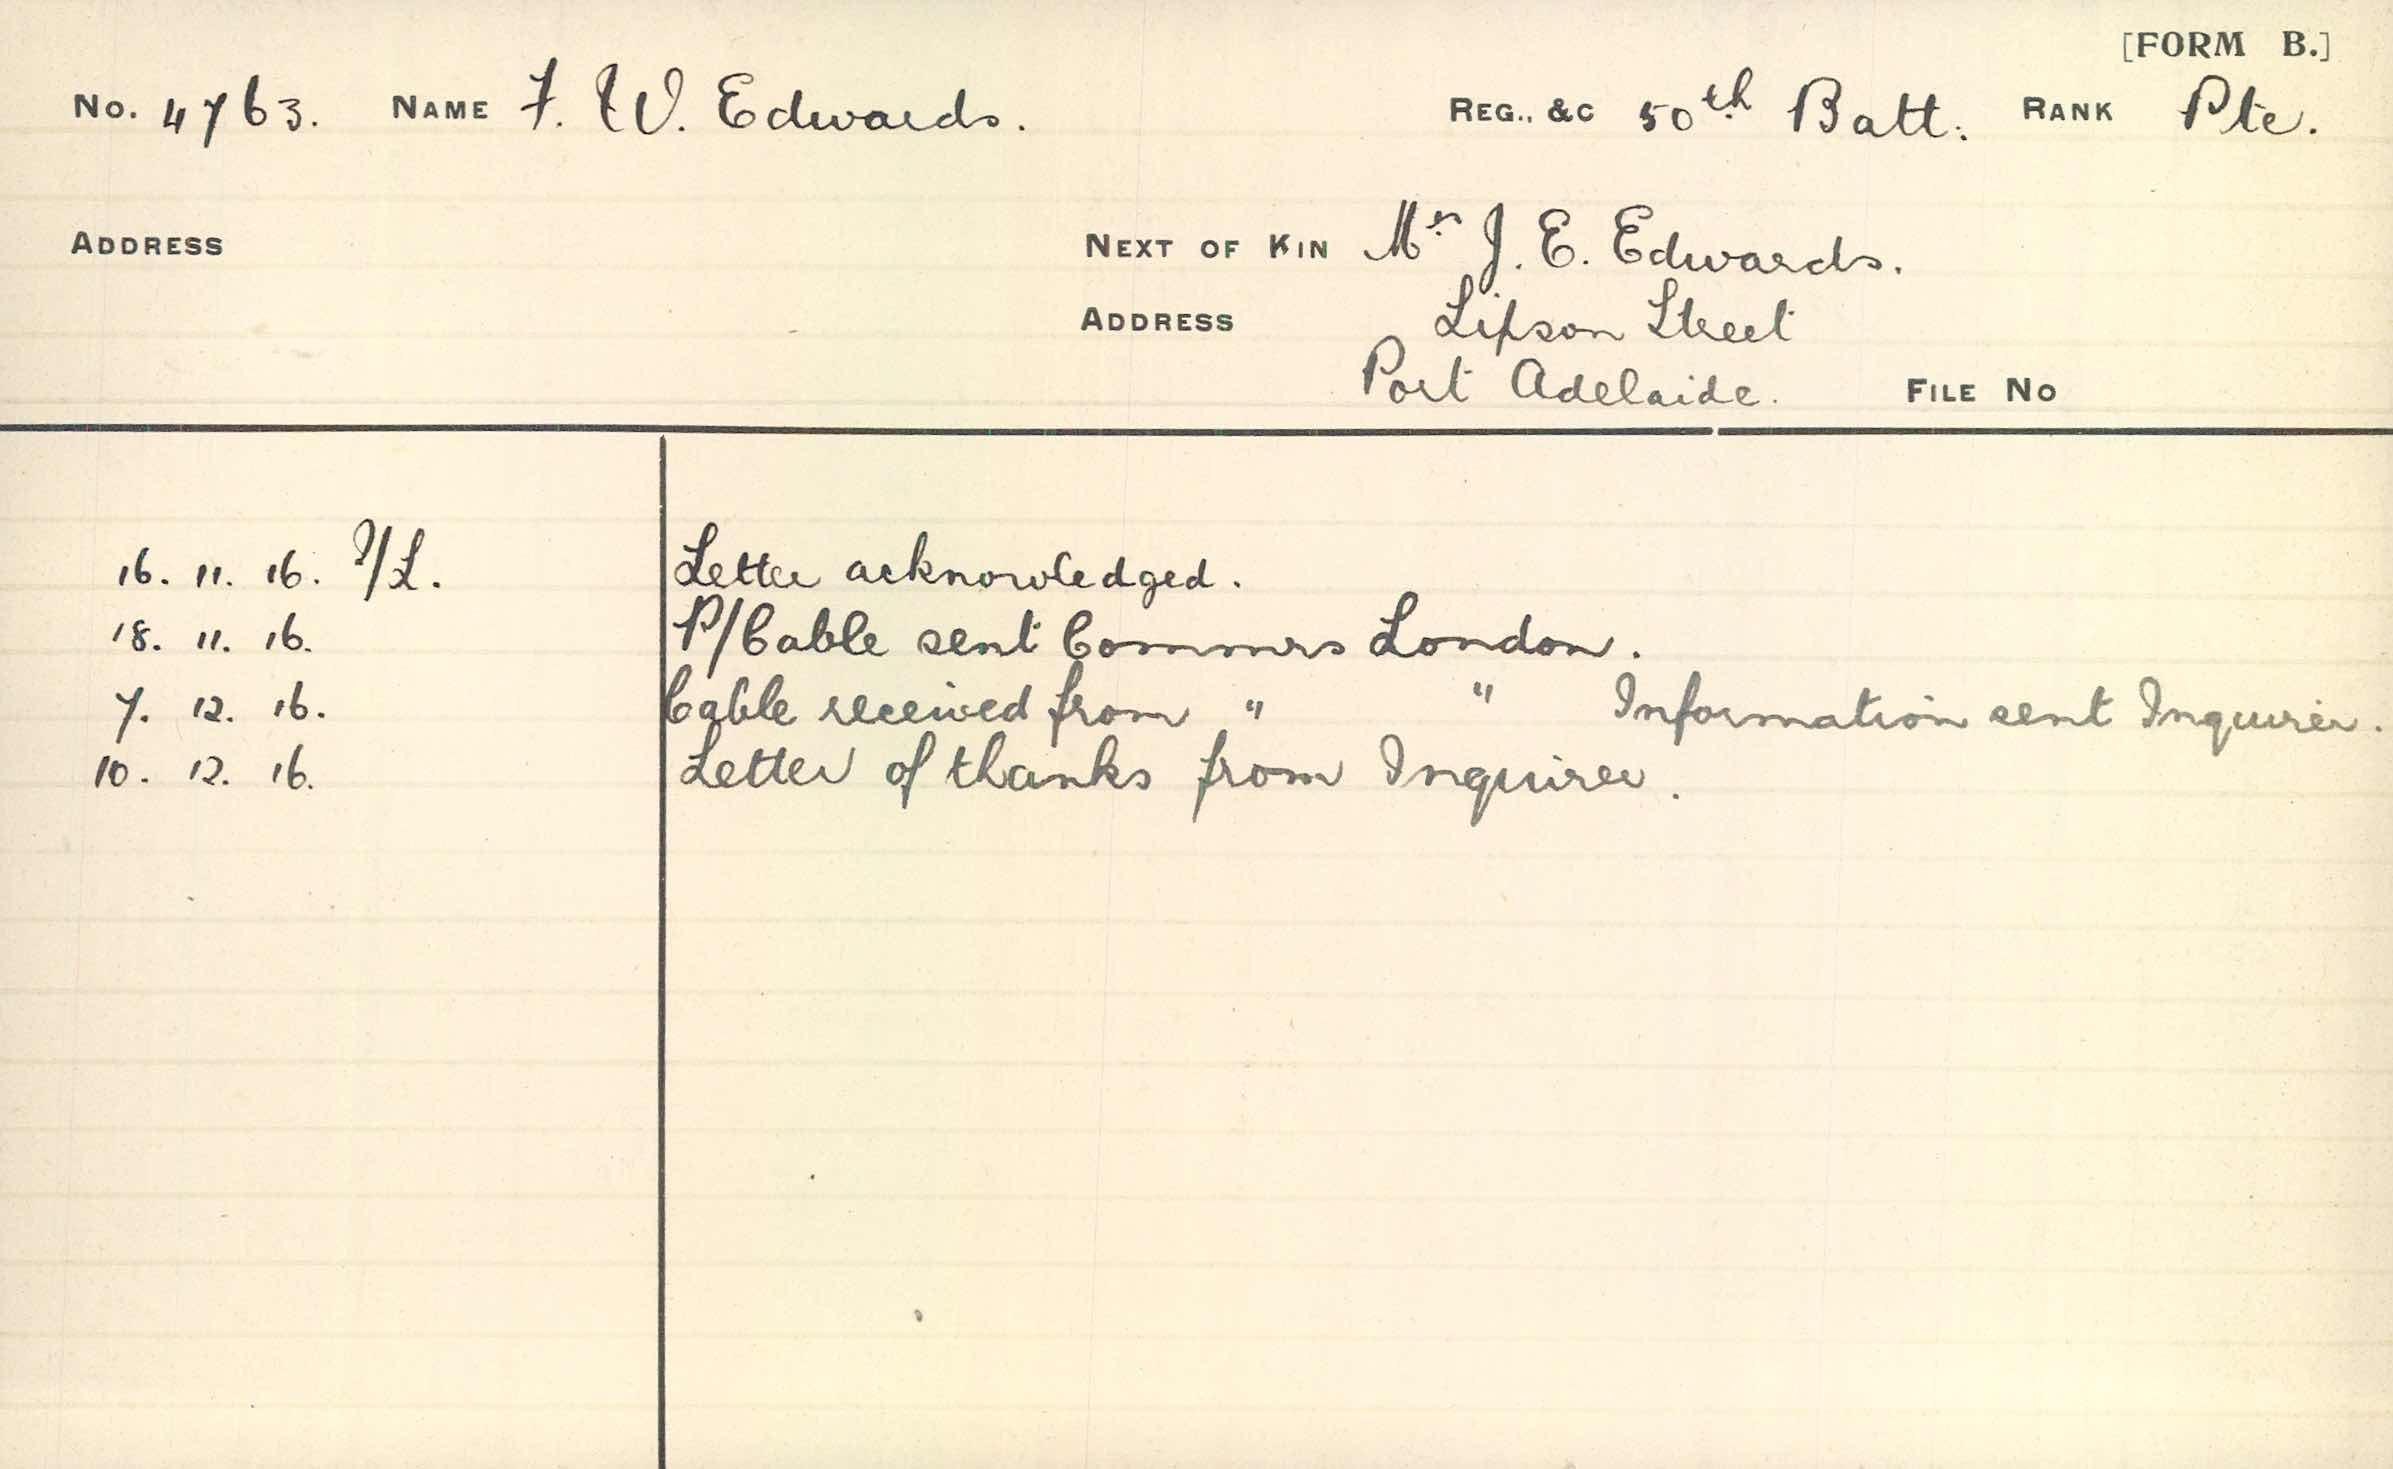 [FORM B.]
No. 4763. NAME F. W. Edwards. REG., &C 50th Batt. RANK Pte.
ADDRESS NEXT OF KIN Mrs J. E. Edwards.
ADDRESS Lipson Street
Port Adelaide. FILE No
16. 11. 16. I/L. Letter acknowledged.
18. 11. 16. P/Cable sent Commrs London.
7. 12. 16. Cable received from " " Information sent Inquirer.
10. 12. 16. Letter of thanks from Inquirer.